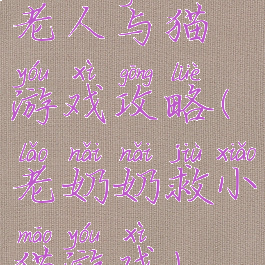 老人与猫
yóu xì gōng lüè
游戏攻略(
lǎo nǎi nǎi jiù xiǎo
老奶奶救小
māo yóu xì
猫游戏)